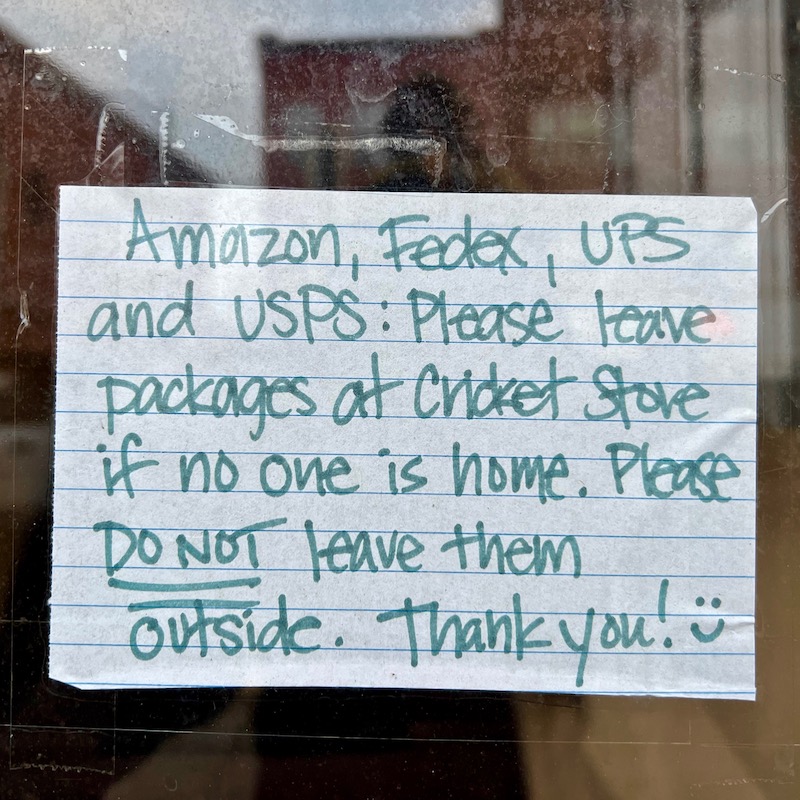 Amazon, Fedex, UPS
and USPS: Please leave
packages at Cricket Store
if no one is home. Please
DO NOT leave them
outside. Thank you! :)